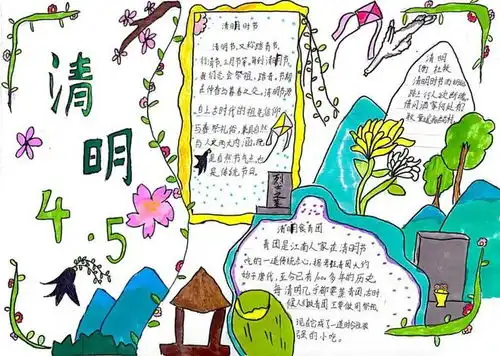 清
明
4.5
清明时节
清明节,又称踏青节、
行清节、三月节等,每到清明节
我们会祭祖、踏青。节期
在仲春与暮春之交。清明节源
自上古时代的祖先信仰
与春祭礼俗,兼具自然
与人文两大内涵,既
是自然节气点,也
是传统节日。
清明
唐 杜牧
清明时节雨纷纷
路上行人欲断魂
借问酒家何处有
清明食青团
青团是江南人家在清明节
吃的一道传统点心,据考证青团大约
始于唐代,至今已有1000多年的历史
每清明几乎都要蒸青团,古时
候人们做青团主要做用祭祀